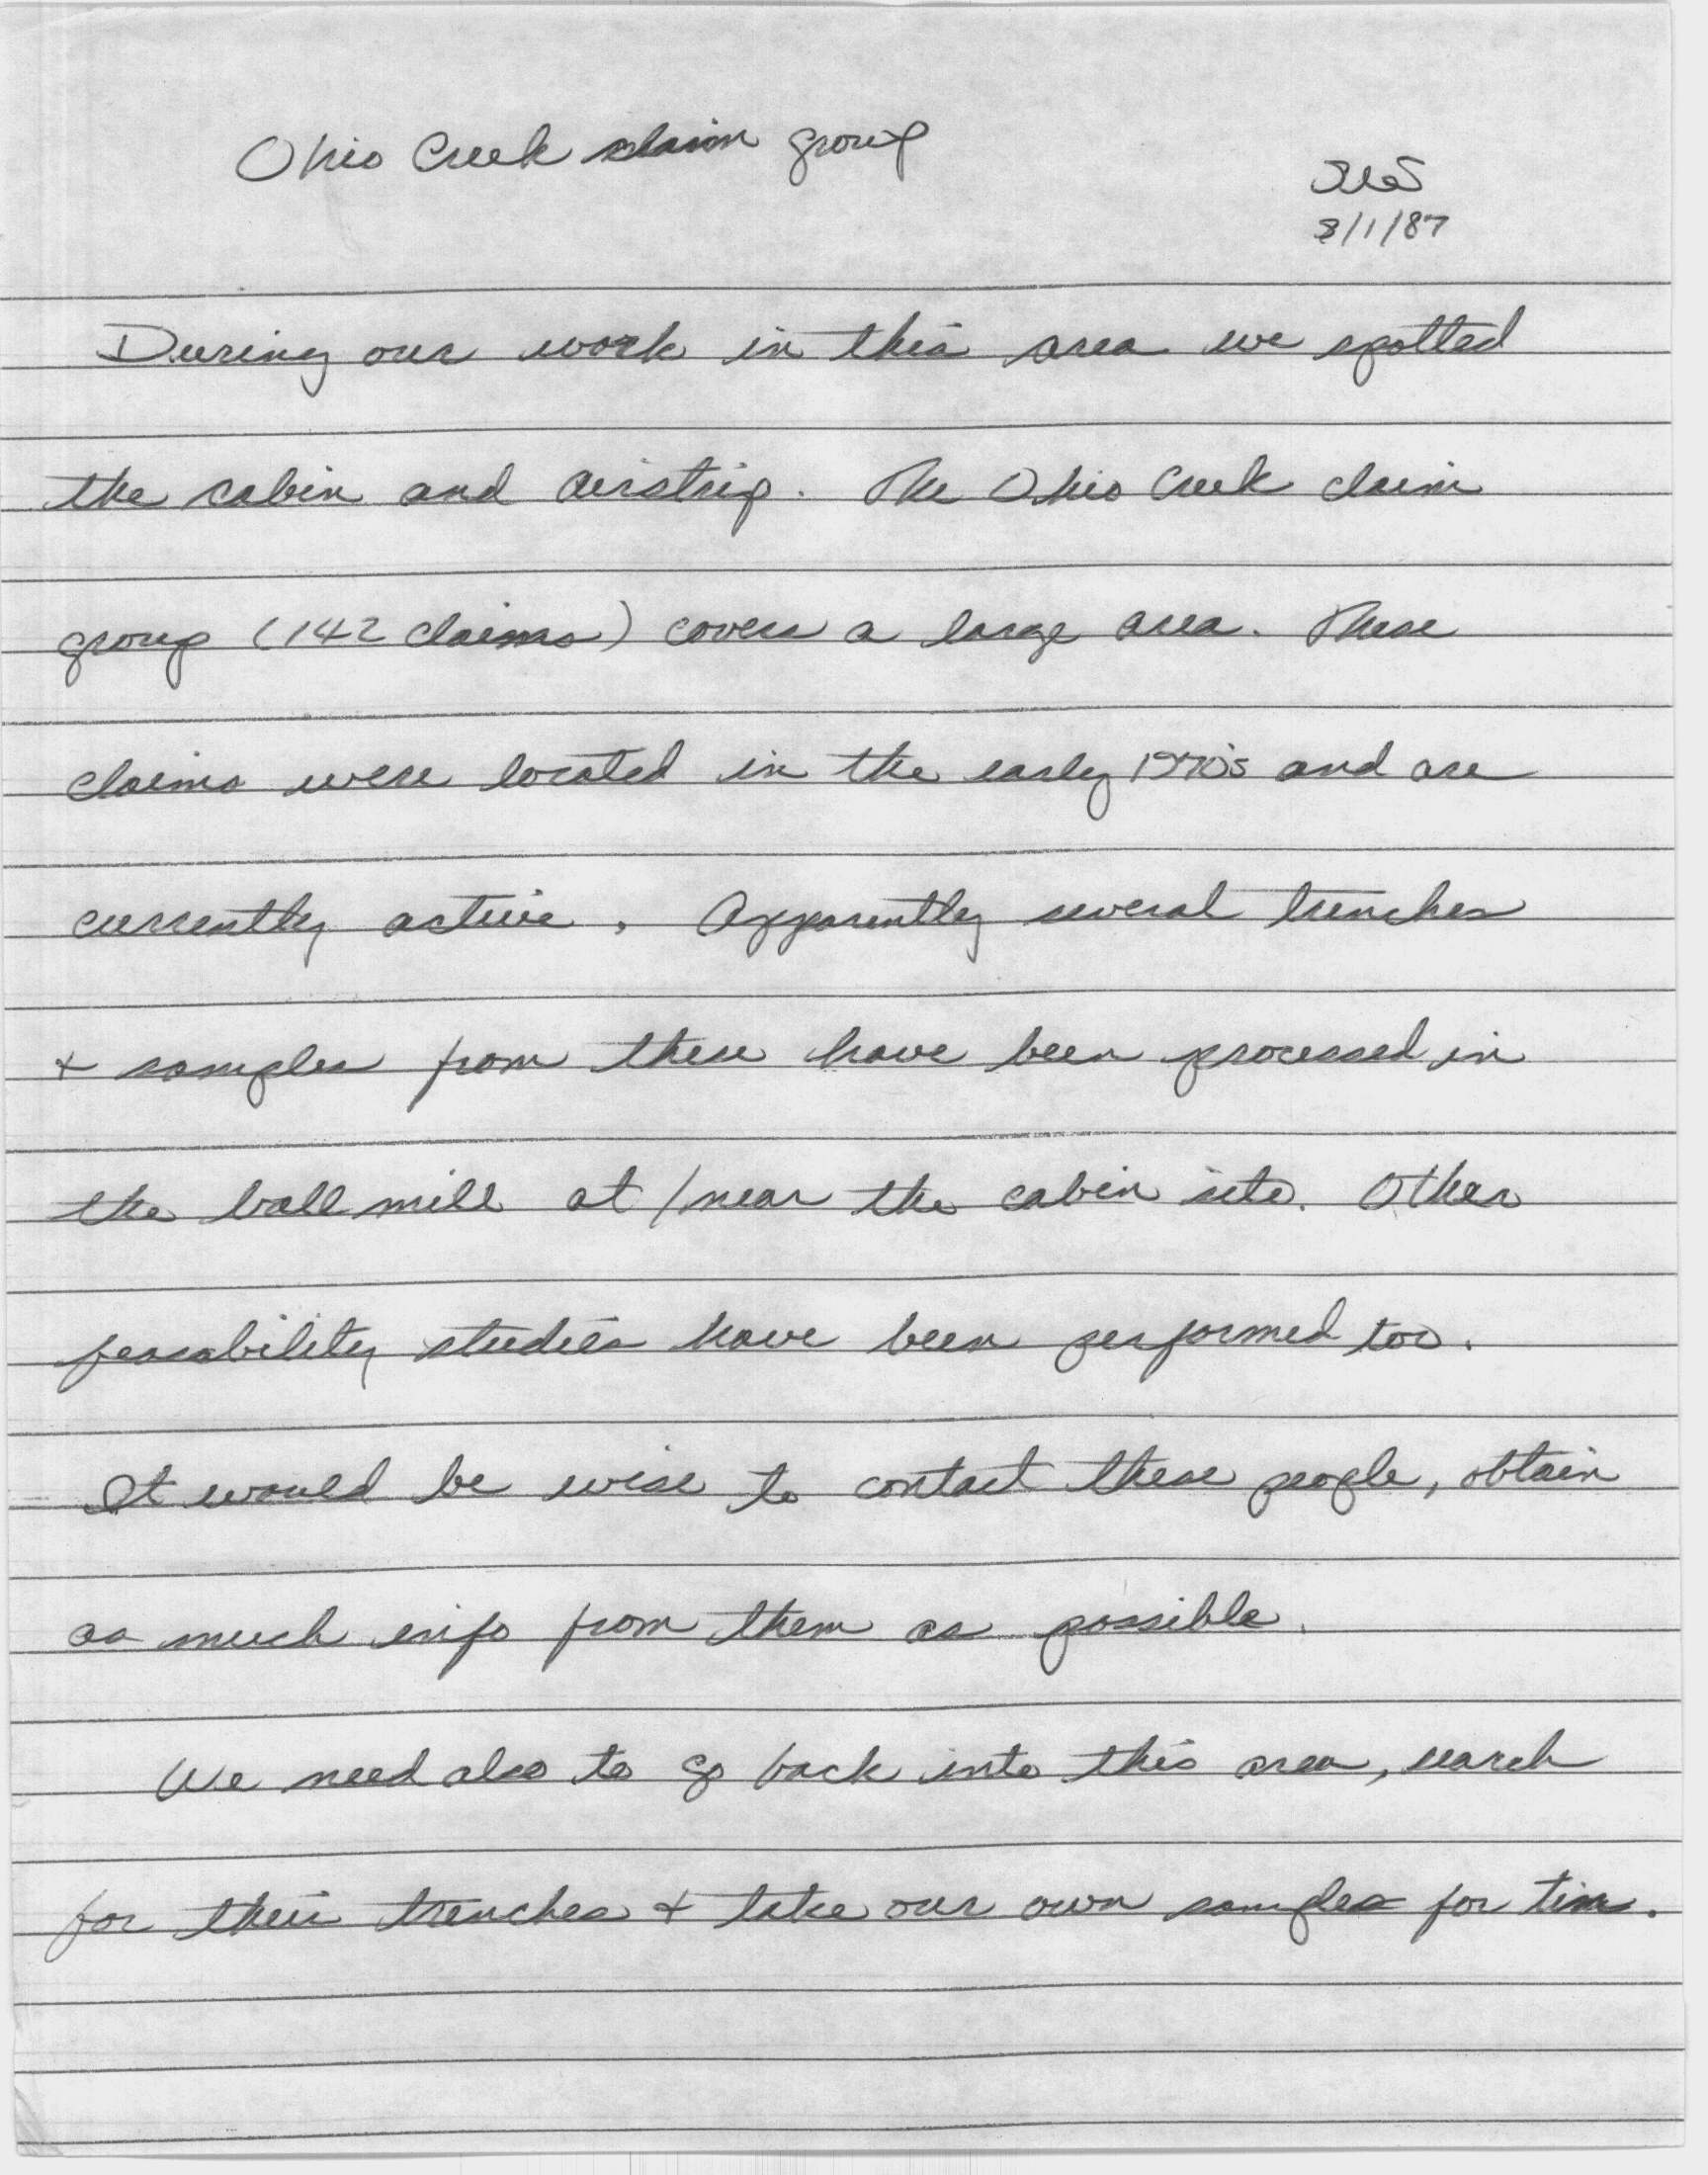 Ohio Creek claim group
3/1/87
During our work in this area we spotted
the cabin and airstrip. The Ohio Creek claim
group (142 claims) covers a large area. These
claims were located in the early 1970's and are
currently active. Apparently several trenches
+ samples from these have been processed in
the ball mill at/near the cabin site. Other
feasability studies have been performed too.
It would be wise to contact these people, obtain
as much info from them as possible.
We need also to go back into this area, search
for their trenches + take our own samples for